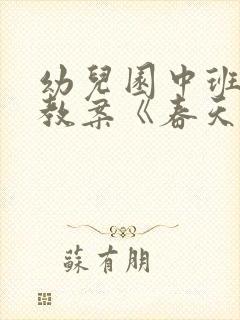 幼兒園中班
教案《春天
蘇有朋